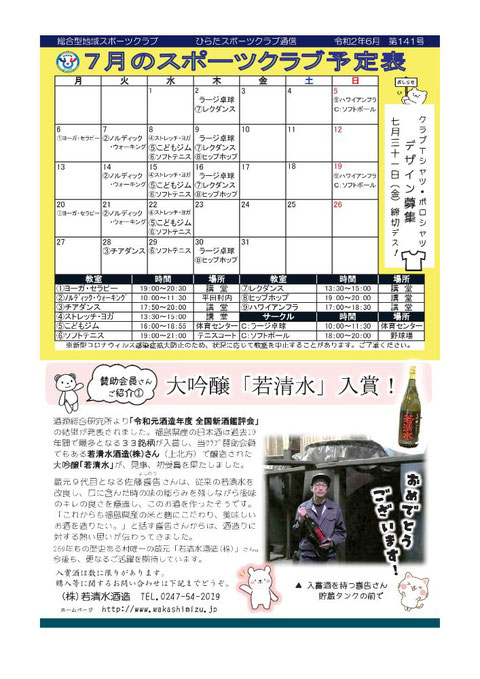 総合型地域スポーツクラブ　ひらたスポーツクラブ通信　令和2年6月　第141号
７月のスポーツクラブ予定表
おしらせ
クラブTシャツ・ポロシャツ
デザイン募集
七月三十一日（金）締切デス！
月 火 水 木 金 土 日
1 2 3 4 5
ラージ卓球
⑦レクダンス
⑨ハワイアンフラ
C：ソフトボール
6 7 8 9 10 11 12
①ヨーガ・セラピー
②ノルディック
・ウォーキング
④ストレッチ・ヨガ
⑤こどもジム
⑥ソフトテニス
ラージ卓球
⑦レクダンス
⑧ヒップホップ
13 14 15 16 17 18 19
②ノルディック
・ウォーキング
④ストレッチ・ヨガ
⑤こどもジム
⑥ソフトテニス
ラージ卓球
⑦レクダンス
⑧ヒップホップ
⑨ハワイアンフラ
C：ソフトボール
20 21 22 23 24 25 26
①ヨーガ・セラピー
②ノルディック
・ウォーキング
④ストレッチ・ヨガ
⑤こどもジム
⑥ソフトテニス
27 28 29 30 31
③チアダンス
⑥ソフトテニス
ラージ卓球
⑧ヒップホップ
教室 時間 場所 教室 時間 場所
①ヨーガ・セラピー 19:00～20:30 講 堂 ⑦レクダンス 13:30～15:00 講 堂
②ノルディック・ウォーキング 10:00～11:30 平田村内 ⑧ヒップホップ 19:00～21:00 講 堂
③チアダンス 17:50～20:00 講 堂 ⑨ハワイアンフラ 17:00～18:30 講 堂
④ストレッチ・ヨガ 13:30～15:00 講 堂 サークル 時間 場所
⑤こどもジム 16:00～18:55 体育センター C：ラージ卓球 10:00～11:30 体育センター
⑥ソフトテニス 19:00～21:00 テニスコート C：ソフトボール 18:00～20:00 野球場
※新型コロナウィルス感染症拡大防止のため、状況に応じて教室を中止することがあります。ご了承ください。
賛助会員さん
ご紹介①
大吟醸「若清水」入賞！
酒類総合研究所より「令和元酒造年度 全国新酒鑑評会」
の結果が発表されました。福島県産の日本酒は過去10
年間で最多となる３３銘柄が入賞し、当ｸﾗﾌﾞ賛助会員
でもある若清水酒造(株)さん（上北方）で醸造された
大吟醸「若清水」が、見事、初受賞を果たしました。
蔵元９代目となる佐藤喜告さんは、従来の若清水を
改良し、口に含んだ時の味の膨らみを残しながら後味
のキレの良さを意識し、このお酒を作ったそうです。
「これからも福島県産の米と麹にこだわり、美味しい
お酒を造りたい。」と話す喜告さんからは、酒造りに
対する熱い思いが伝わってきました。
269年もの歴史ある村唯一の蔵元「若清水酒造（株）」さん。
今後も、更なるご活躍を期待しています。
入賞酒は数に限りがあります。
購入等に関するお問い合わせは下記までどうぞ。
(株)若清水酒造　TEL.0247-54-2019
ホームページ　http://www.wakashimizu.jp
若清水
おめでとう
ございます！
▲ 入賞酒を持つ喜告さん
貯蔵タンクの前で